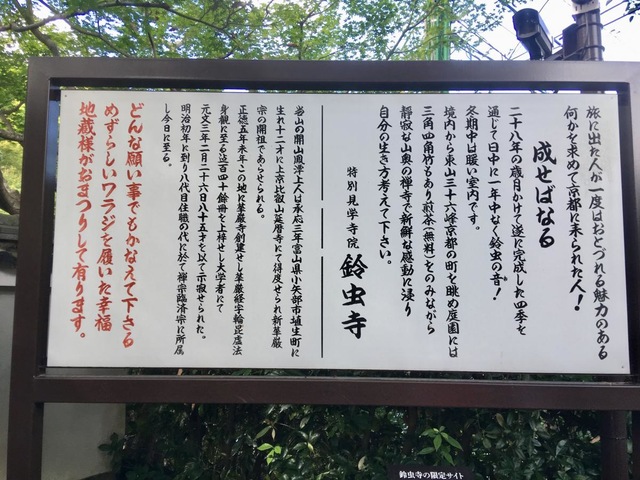 旅に出た人が一度はおとづれる魅力のある
何かを求めて京都に来られた人！
成せばなる
二十八年の歳月かけて遂に完成した四季を
通じて日中に一年中なく鈴虫の音！
冬期中は暖い室内です。
境内から東山三十六峰京都の町を眺め庭園には
三角四角竹もあり煎茶（無料）をのみながら
静寂な山奥の禅寺で新鮮な感動に浸り
自分の生き方考えて下さい。
特別見学寺院 鈴虫寺
当山の開山鳳潭上人は承応三年富山県小矢部市埴生町に
生れ十二才に上京比叡山延暦寺にて得度せられ新華厳
宗の開祖であらせられる。
正徳五年末年この地に華厳寺創建せし華厳経字輪毘盧法
身観に至る迄百四十余冊を上梓せし大学者にて
元文三年二月二十六日八十五才を以て示寂せられた。
明治初年に到り八代目住職の代に於て禅宗臨済宗に所属
し今日に至る。
どんな願い事でもかなえて下さる
めずらしいワラジを履いた幸福
地蔵様がおまつりして有ります。
鈴虫寺の限定サイト